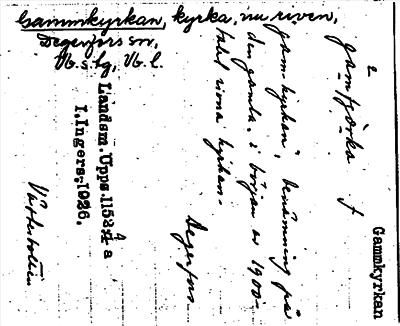 Gammkyrkan, kyrka, nu riven,
Degerfors sn,
Vb. s. tg, Vb. l.
Gammkyrkan
gam kyrkan, benämning på
den gamla, i början av 1900-
talet rivna kyrkan.
Degerfors
Landsm. Upps. 1152 a
I. Ingers. 1926.
Västerbotten